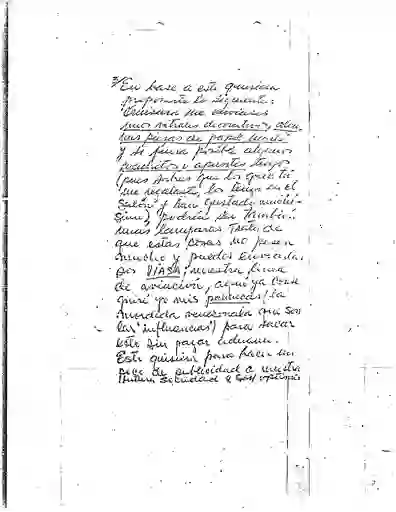 3/ En base a este quisiera
proponerte lo siguiente:
Quisiera me enviases
unos retratos decorativos, algu-
nas piezas de papel
y si fuera posible algunos
o apuntes tuyos
(pues sabes que los que tu
me regalaste, los tengo en el
salón y han gustado muchí-
simo) podrían ser tambien
unas lamparas. Trata de
que estas cosas no pesen
mucho y puedes enviarla
por VIASA nuestra linea
de aviación, aquí ya conse-
guiré yo mis (la
mordida venezolana que son
las "influencias") para sacar
esto sin pagar aduana.
Esto quisiera para hacer un
poco de publicidad a nuestra
futura sociedad